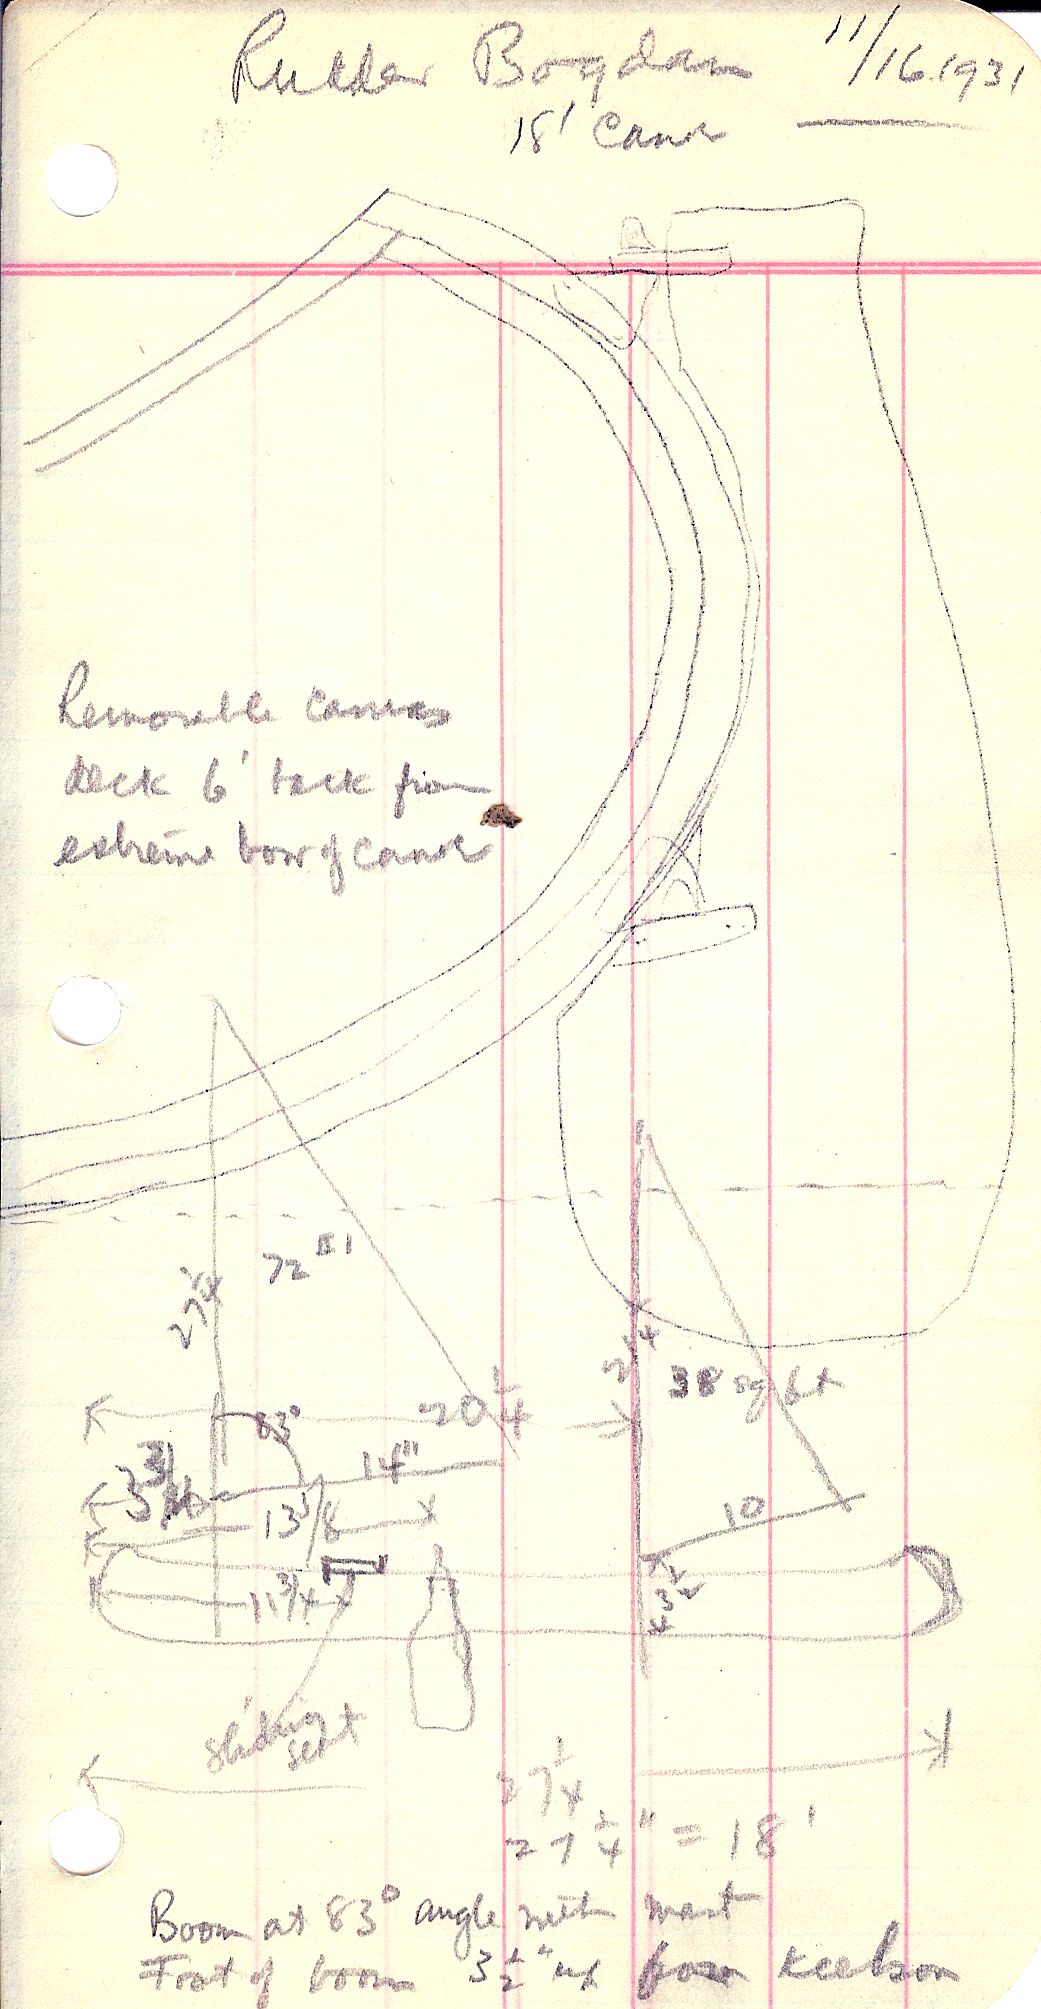 Rudder Bogdan 11/16.1931
18' Canoe
Removable canvas
deck 6' back from
extreme bow of canoe
27 1/4
72
38 sq ft
20 1/4
83°
14"
3 3/4
13 1/8
10
11 3/4
3 1/2
sliding
seat
27 1/4
27 1/4" = 18'
Boom at 83° angle with mast
Foot of boom 3 1/2" up from keelson